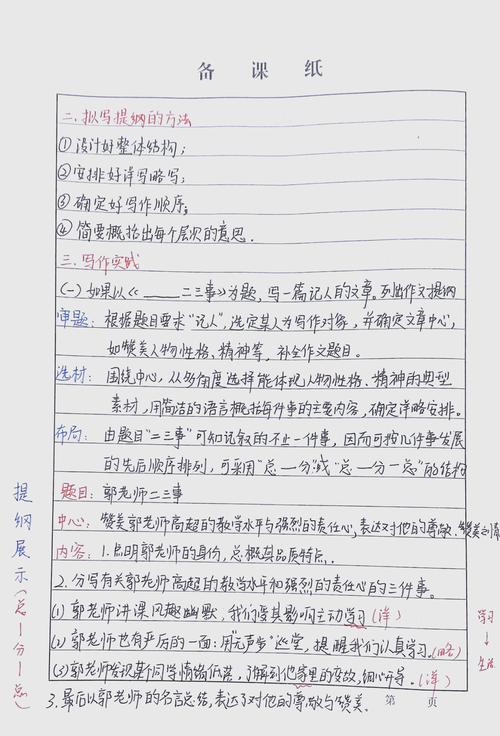 备 课 纸
二.拟写提纲的方法
①设计好整体结构;
②安排好详写略写;
③确定好写作顺序;
④简要概括出每个层次的意思.
三.写作实践
(一)如果以《____二三事》为题,写一篇记人的文章。列出作文提纲
审题:根据题目要求"记人",选定某人为写作对象,并确定文章中心,
如赞美人物性格、精神等,补全作文题目。
选材:围绕中心,从多角度选择能体现人物性格、精神的典型
素材,用简洁的语言概括每件事的主要内容,确定详略安排。
布局:由题目"二三事"可知记叙的不止一件事,因而可按几件事发展
的先后顺序排列,可采用"总—分"或"总—分—总"的结构
题目:郭老师二三事
中心:赞美郭老师高超的教学水平与强烈的责任心,表达对他的尊敬、赞美之情
内容:1.点明郭老师的身份,总概其品质特点.
2.分写有关郭老师高超的教学水平和强烈的责任心的三件事。
(1)郭老师讲课风趣幽默,我们受其影响主动学习(详)
(2)郭老师也有严厉的一面:用"无声步"巡堂,提醒我们认真学习.(略)
(3)郭老师发现某同学情绪低落,了解到他家里的变故,细心开导.(详)
3.最后以郭老师的名言总结,表达了对他的尊敬与赞美.
第 页
提纲展示(总—分—总)
学习
↓
生活